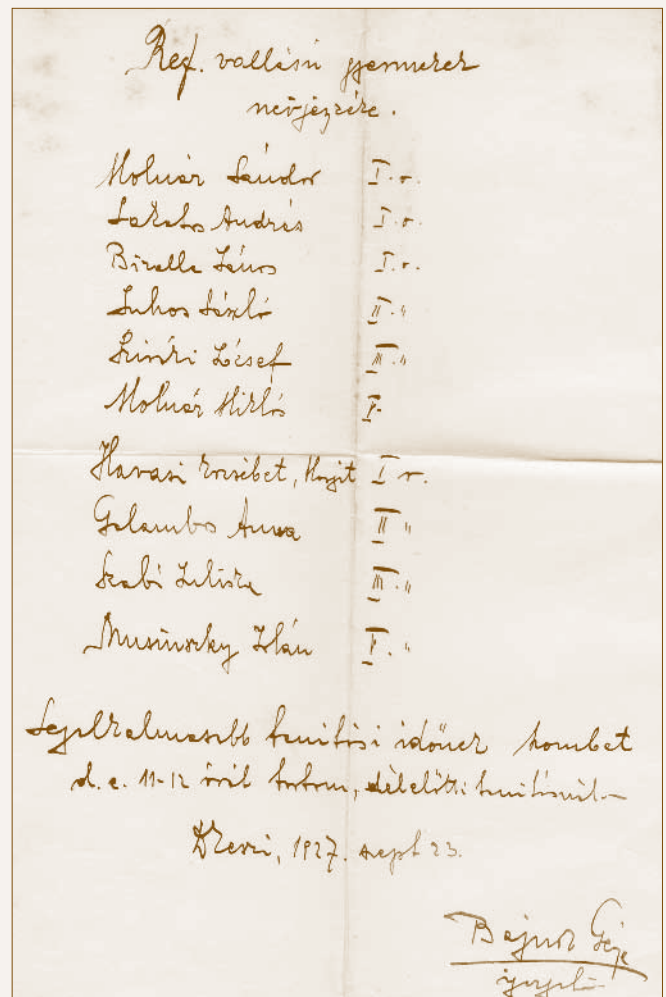 Ref. vallású gyermekek
névjegyzéke.
Molnár Sándor I. o.
Lakatos András I. o.
Bizella János I. o.
Juhos László II. "
Sziráki József III. "
Molnár Miklós V.
Havasi Erzsébet, Margit I o.
Galambos Anna II "
Szabó Juliska III. "
Musinszky Zoltán V. "
Legalkalmasabb tanítási időnek szombat
d. e. 11-12 óráig tartom, délelőtti tanításnál.
1927. szept 23.
Bajusz Géza